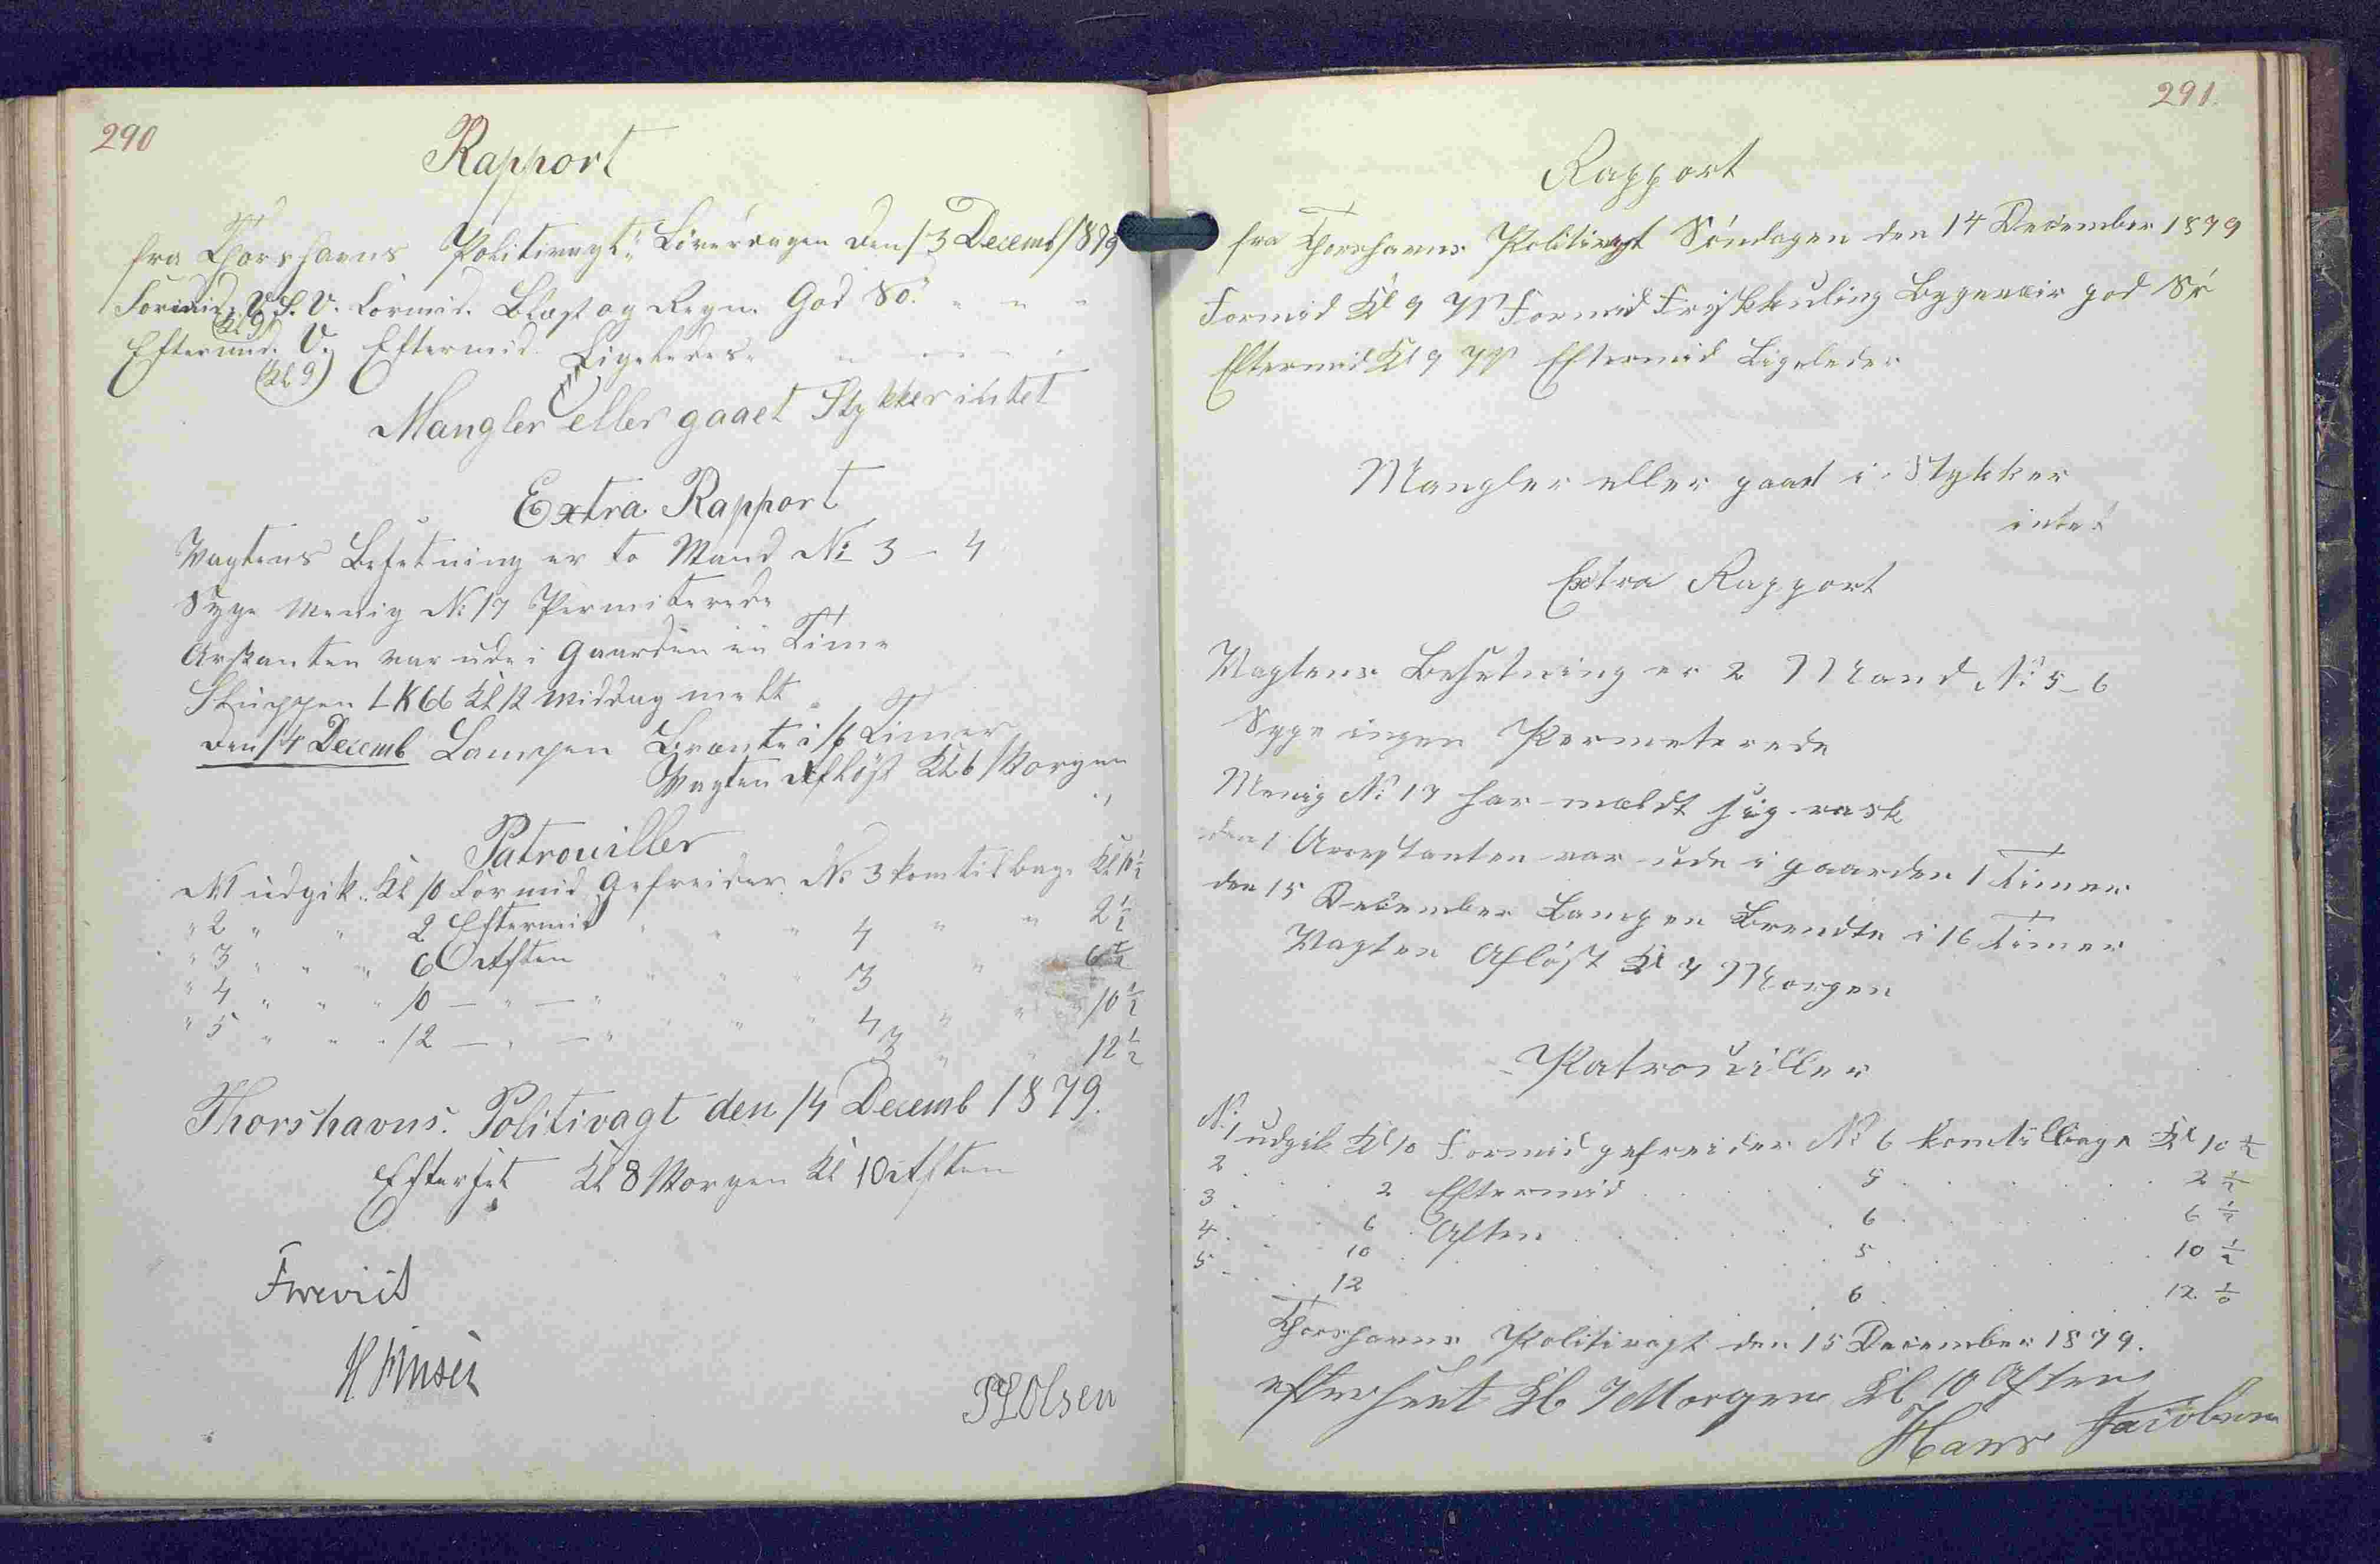 290
Rapport
fra Thorshavns Politivagt: Löverdagen den 13 Decemb 1879
Formid. V.S.V. Formid. Blæst og Regn. God Sö. " " "
(Kl 9)
Eftermid. V. Eftermid. Ligeledes. " " " "
(Kl 9)
Mangler eller gaaet Stykker intet
Extra Rapport
Vagtens Besetning er to Mand No 3 - 4
Syge Menig No 17 Permiterede
Arstanten var ude i Gaarden en Time
Kl 12 Middag
den 14 Decemb Lampen Brænte i 16 Timer
Vagten Aflöst Kl 6 Morgen
Patrouiller
No 1 udgik Kl 10 Formid Gefreider No 3 kom tilbage Kl 10 1/2
" 2 " " 2 Eftermid " " " 4 " " 2 1/2
" 3 " " " 6 Aften " " " 3 " 6 1/2
" 4 " " " 10 — " — " " " " 4 " " 10 1/2
" 5 " " " 12 — " — " 3 " " 12 1/2
Thorshavns. Politivagt den 14 Decemb 1879.
Efterset Kl 8 Morgen Kl 10 Aften
H Finsen
Olsen
291.
Rapport
fra Thorshavns Politivagt Söndagen den 14 December 1879
Formid Kl 9 Formid Frisk kuling Bygeveir god Sö
Eftermid Kl 9 Eftermid Ligeledes
Mangler eller gaaet i Stykker
intet
Extra Rapport
Vagtens Besetning er 2 Mand No 5-6
Syge ingen Permeterede
Menig No 17 har meldt sig rask
den 1 Arrestanten var ude i gaarden 1 Timer
den 15 December Lampen Brendte i 16 Timer
Vagten Aflöst Kl 7 Morgen
Patrouiller
No 1 udgik Kl 10 Formid gefreider No 6 kom tilbage Kl 10 1/2
2 . . . 2 Eftermid . . . 5 . . . 2 1/2
3 . . . 6 Aften . . . 6 . . . 6 1/2
4 . . . 10 . . . 5 . . . 10 1/2
5 . . . 12 . . . 6 . . . 12 1/2
Thorshavns Politivagt den 15 December 1879.
efterseet Kl 7 Morgen Kl 10 Aften
Hans Jacobsen